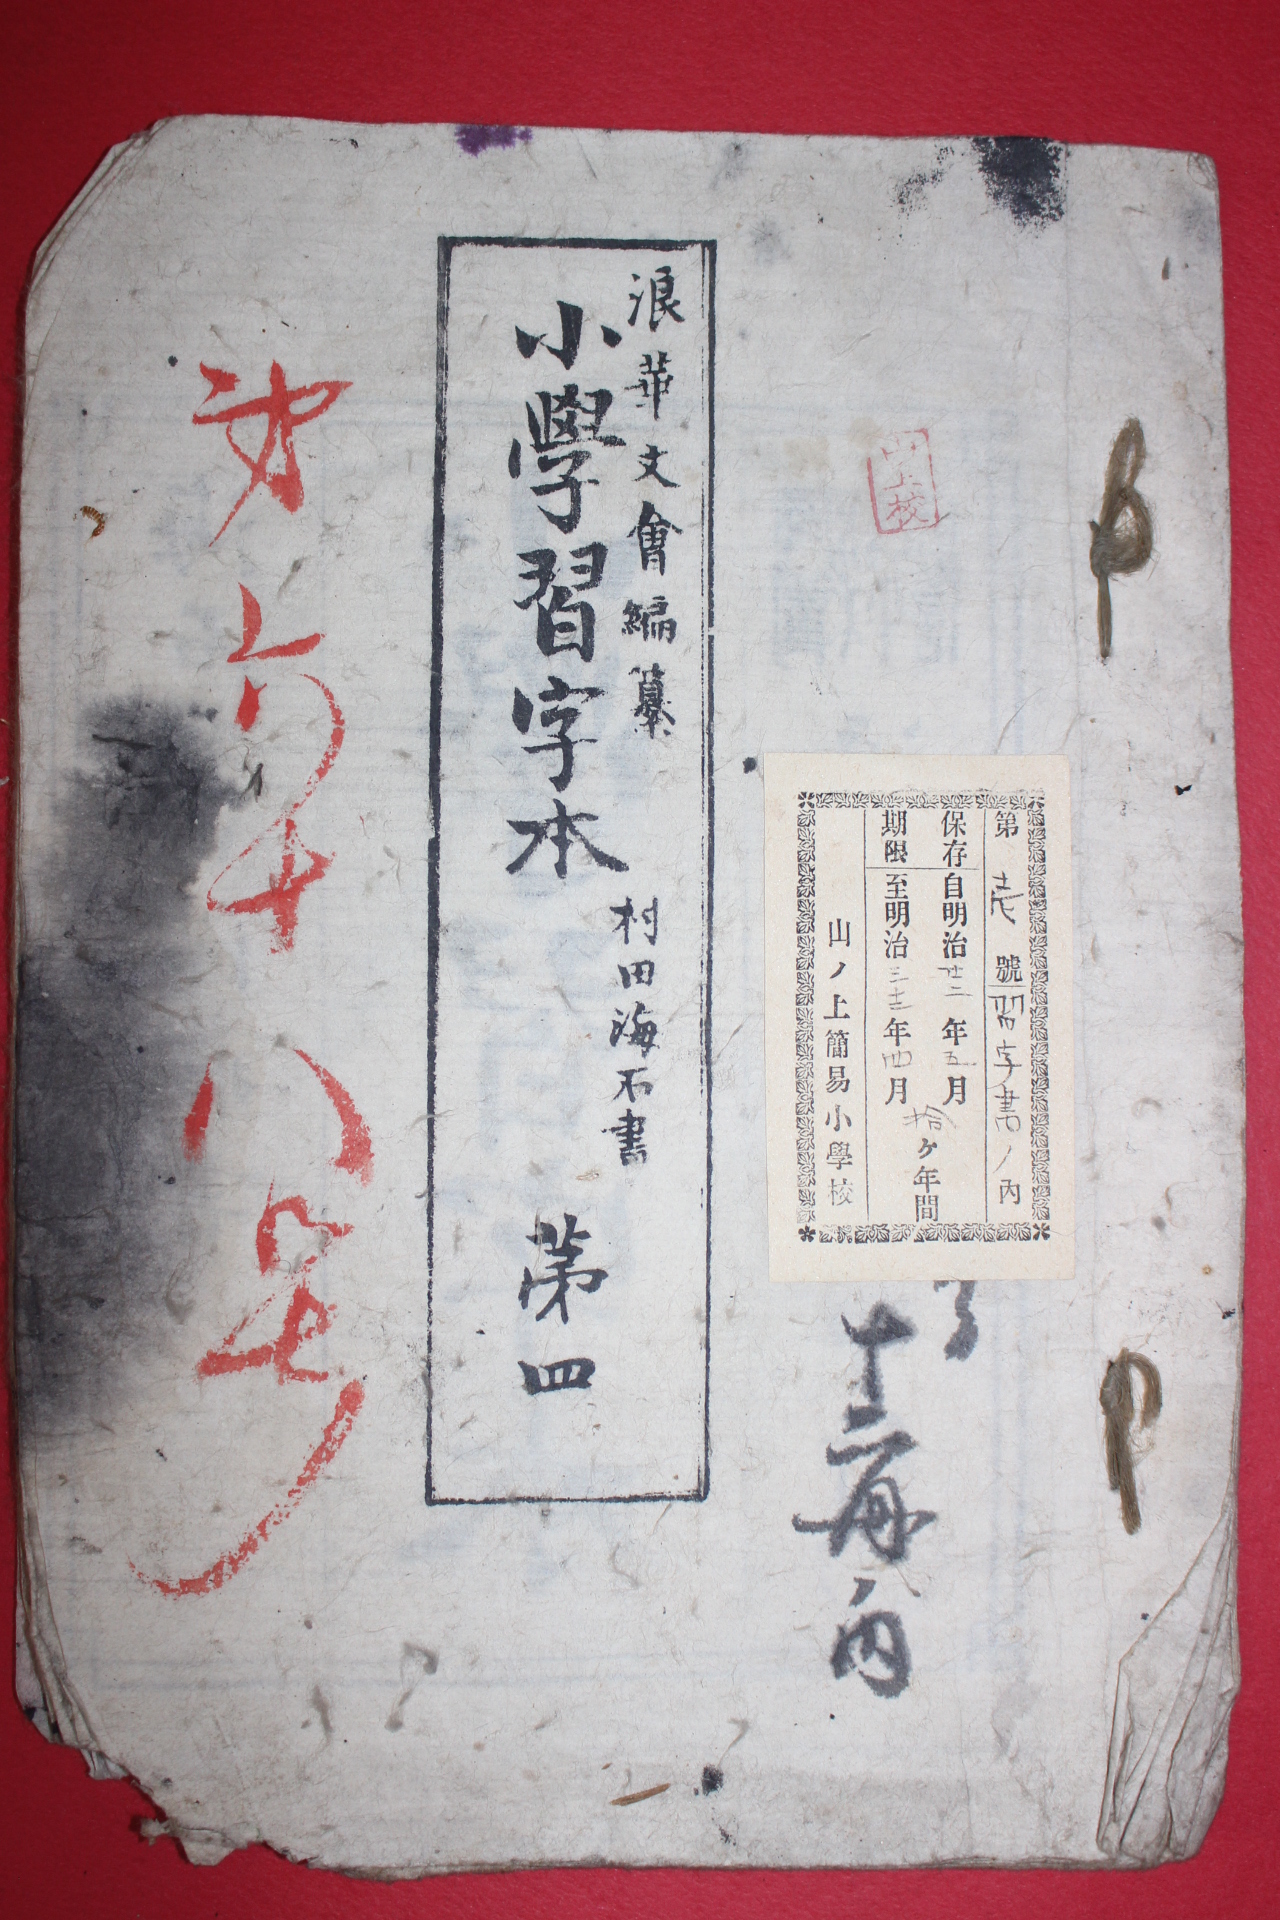 山上校
第壱號習字書ノ內
保存期限
自明治廿二年五月
至明治三十二年四月
拾ケ年間
山ノ上簡易小學校
十二冊ノ內
浪華文會編纂
小學習字本
村田海石書
第四
第六十八号